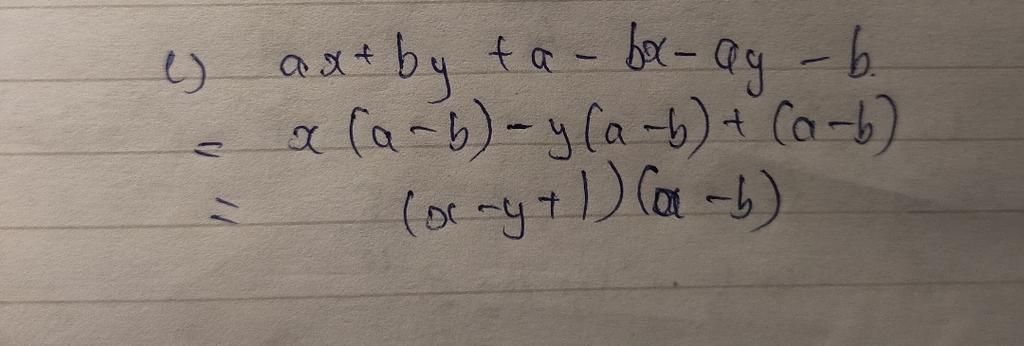 c) ax + by + a - bx - ay - b.
= x (a - b) - y (a - b) + (a - b)
= (x - y + 1) (a - b)